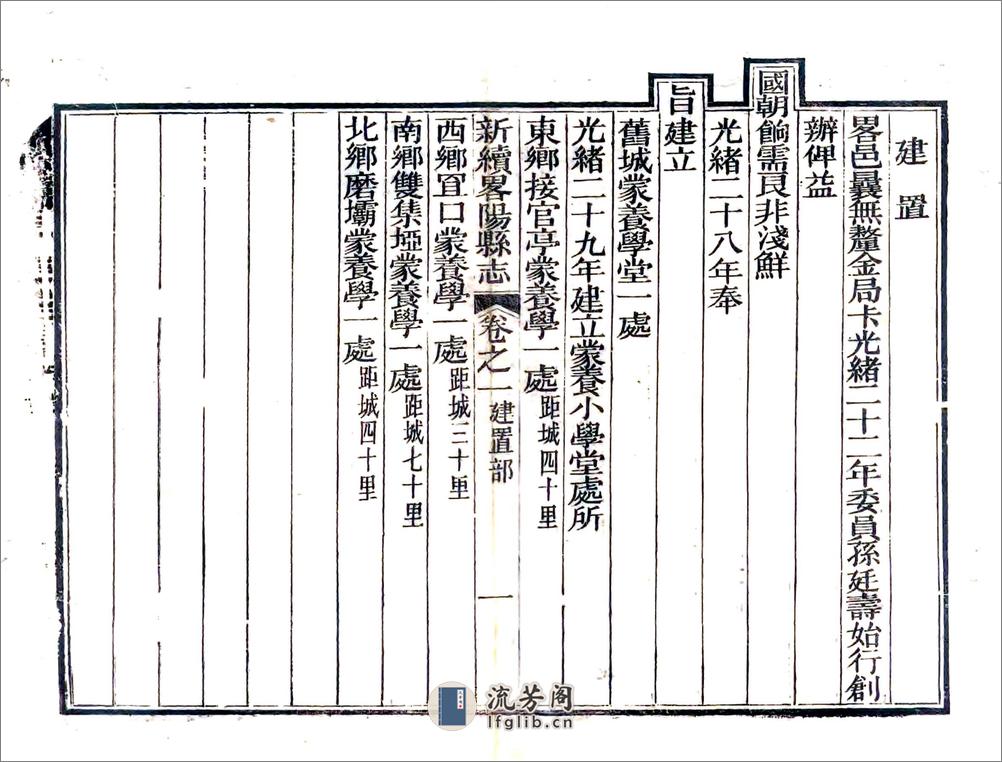 建置
畧邑曩無釐金局卡光緒二十二年委員孫廷壽始行創
辦俾益
國朝餉需良非淺鮮
光緒二十八年奉
旨建立
舊城蒙養學堂一處
光緒二十九年建立蒙養小學堂處所
東鄉接官亭蒙養學一處距城四十里
新續畧陽縣志 卷之一建置部 一
西鄉宜口蒙養學一處距城三十里
南鄉雙集埡蒙養學一處距城七十里
北鄉磨壩蒙養學一處距城四十里
流芳阁
lfglib.cn